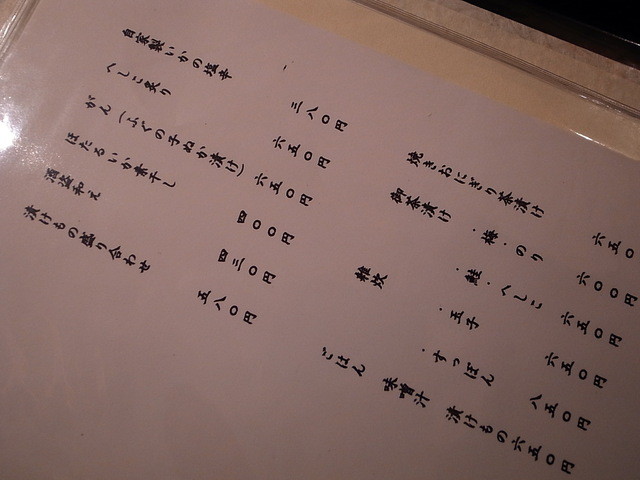 自家製いかの塩辛 三八〇円
へしこ炙り 六五〇円
がん(ふぐの子ぬか漬け) 六五〇円
ほたるいか素干し 四〇〇円
酒盗和え 四三〇円
漬けもの盛り合わせ 五八〇円
焼きおにぎり茶漬け 六五〇
御茶漬け ・梅・のり 六〇〇円
・鮭・へしこ 六五〇円
雑炊 ・玉子 六五〇円
・すっぽん 八五〇円
ごはん 味噌汁 漬けもの 六五〇円